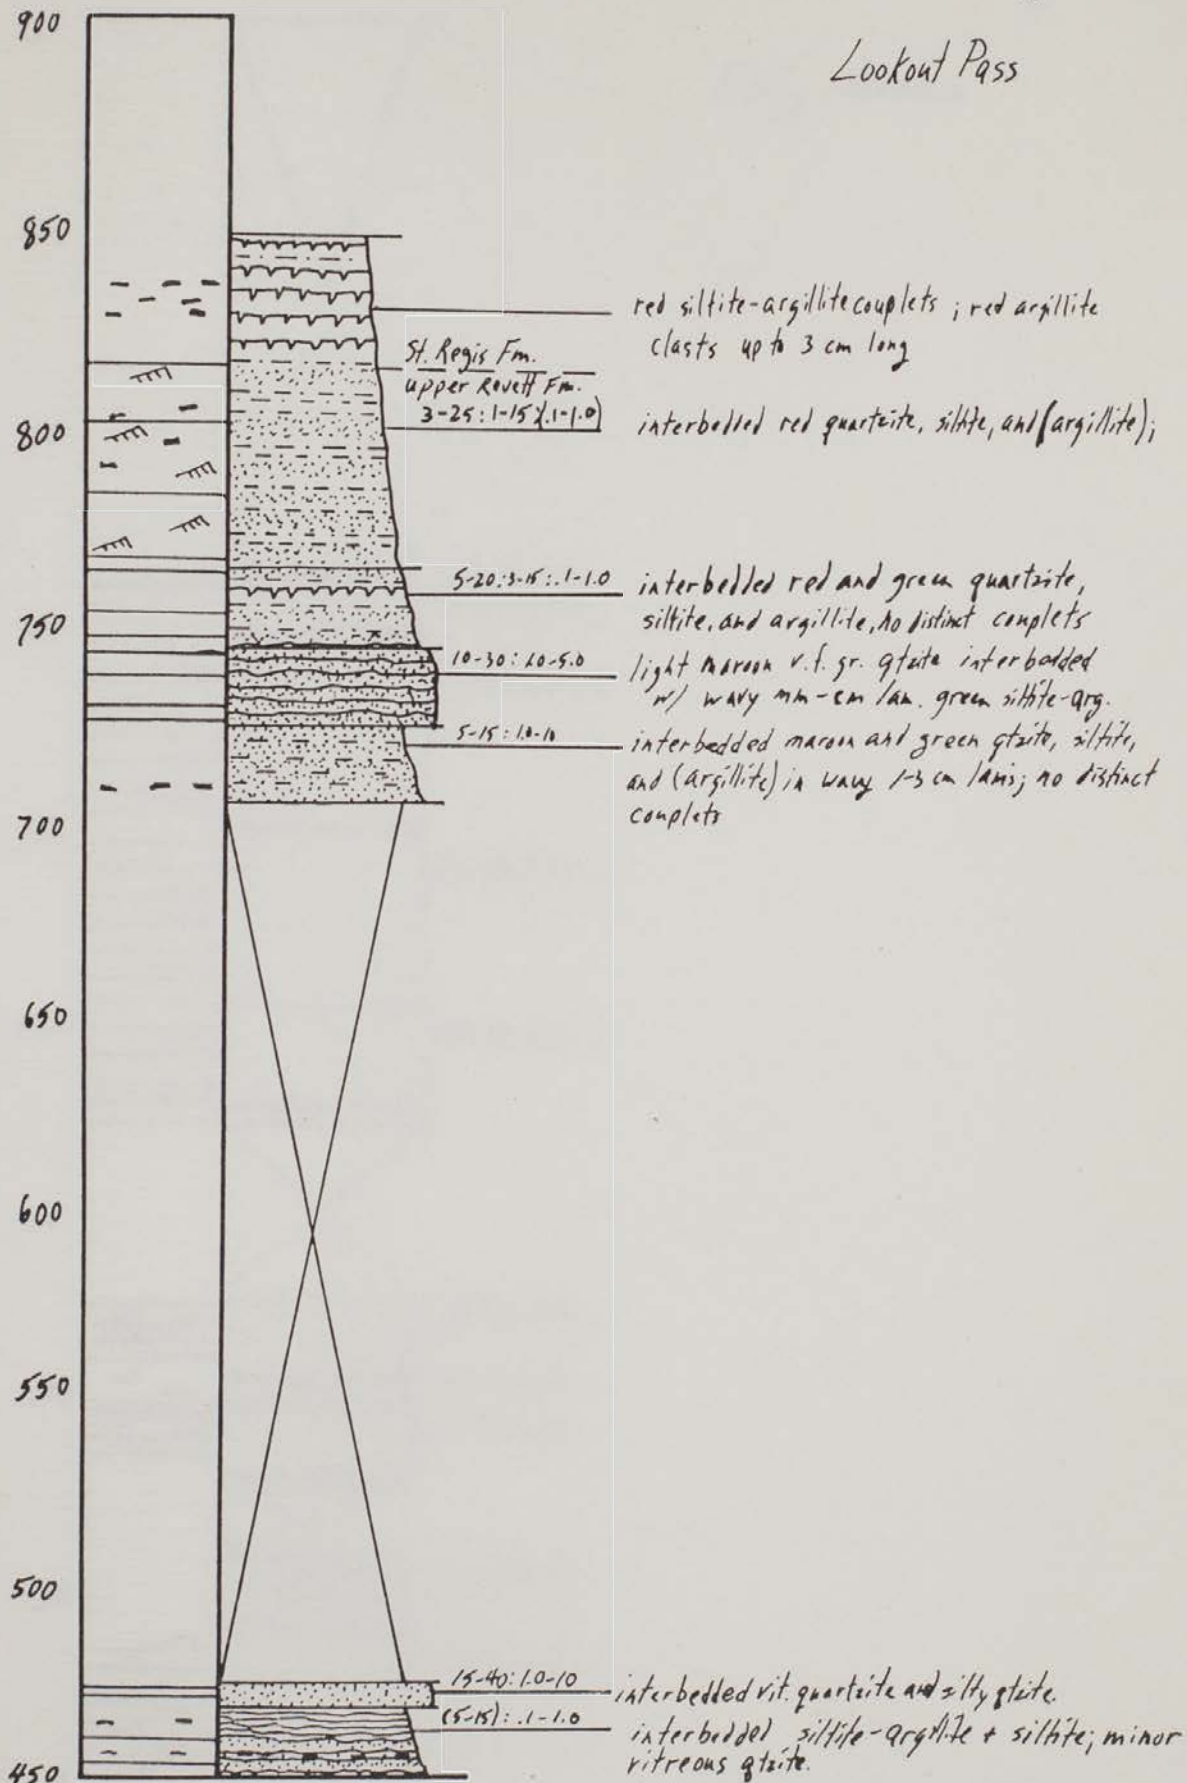 Lookout Pass
900
850
red siltite-argillite couplets ; red argillite
clasts up to 3 cm long
St. Regis Fm.
upper Revett Fm.
3-25 : 1-15 (.1-1.0)
800
interbedded red quartzite, siltite, and (argillite);
5-20:3-15:.1-1.0
interbedded red and green quartzite,
siltite, and argillite, no distinct couplets
750
10-30 : 1.0-5.0
light maroon v.f. gr. qtzite interbedded
w/ wavy mm-cm lam. green siltite-arg.
5-15 : 1.0-10
interbedded maroon and green qtzite, siltite,
and (argillite) in wavy 1-3 cm lams; no distinct
couplets
700
650
600
550
500
15-40: 1.0-10
interbedded vit. quartzite and silty qtzite.
(5-15): .1-1.0
interbedded siltite-argillite + siltite; minor
vitreous qtzite.
450